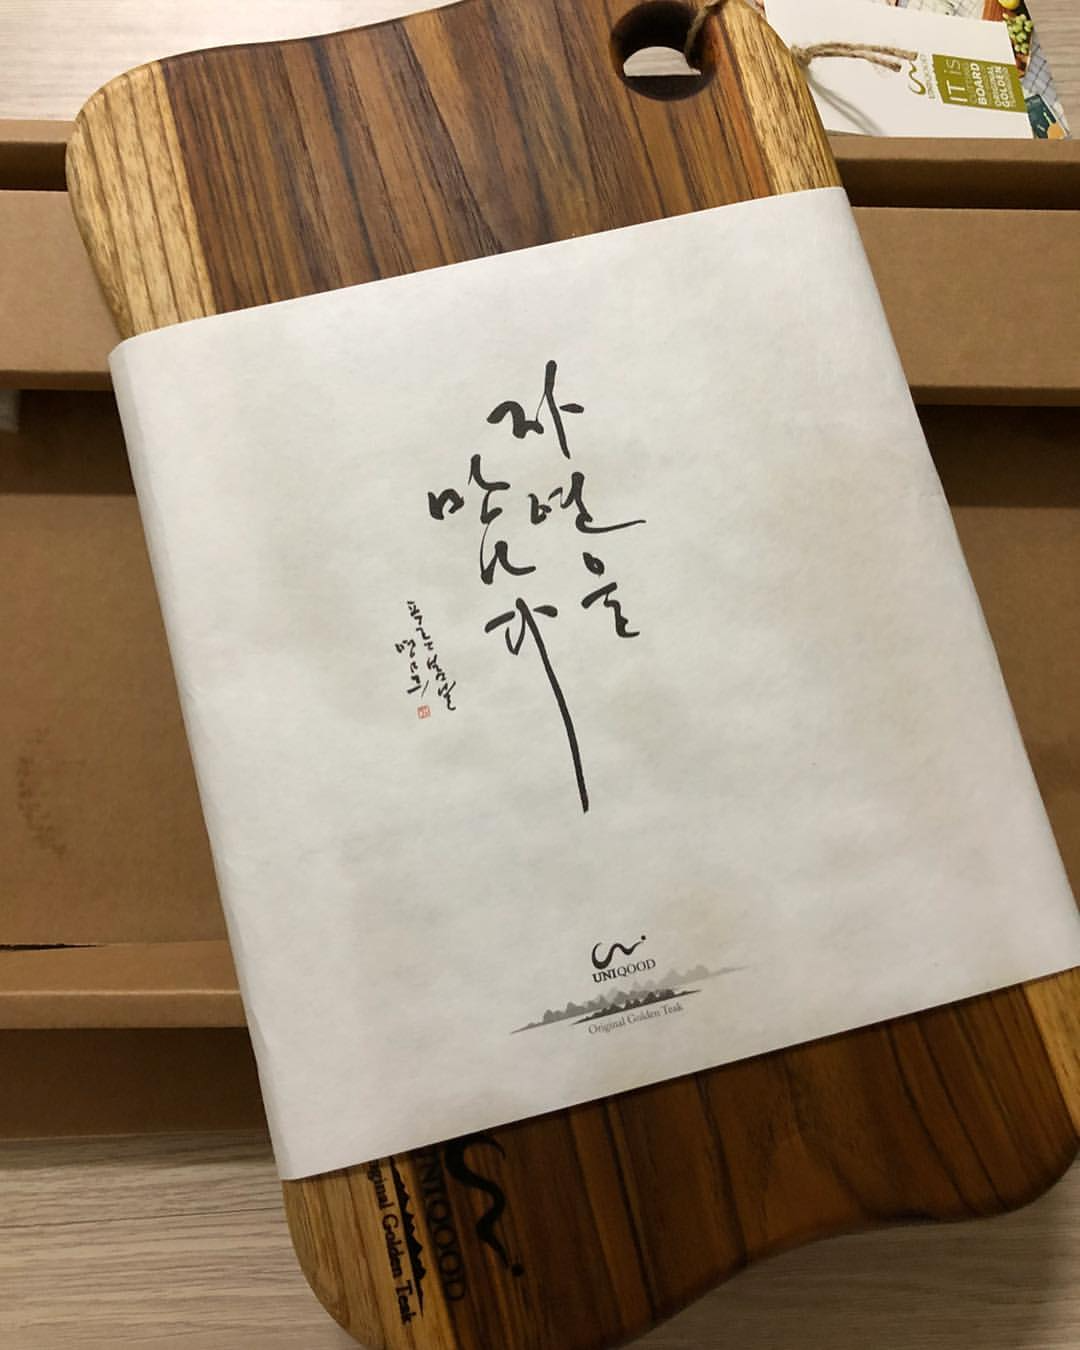 UNIQOOD
IT is
BOARD
ORIGINAL
GOLDEN
자연을
만나다
UNIQOOD
Original Golden Teak
UNIQOOD
Golden Teak